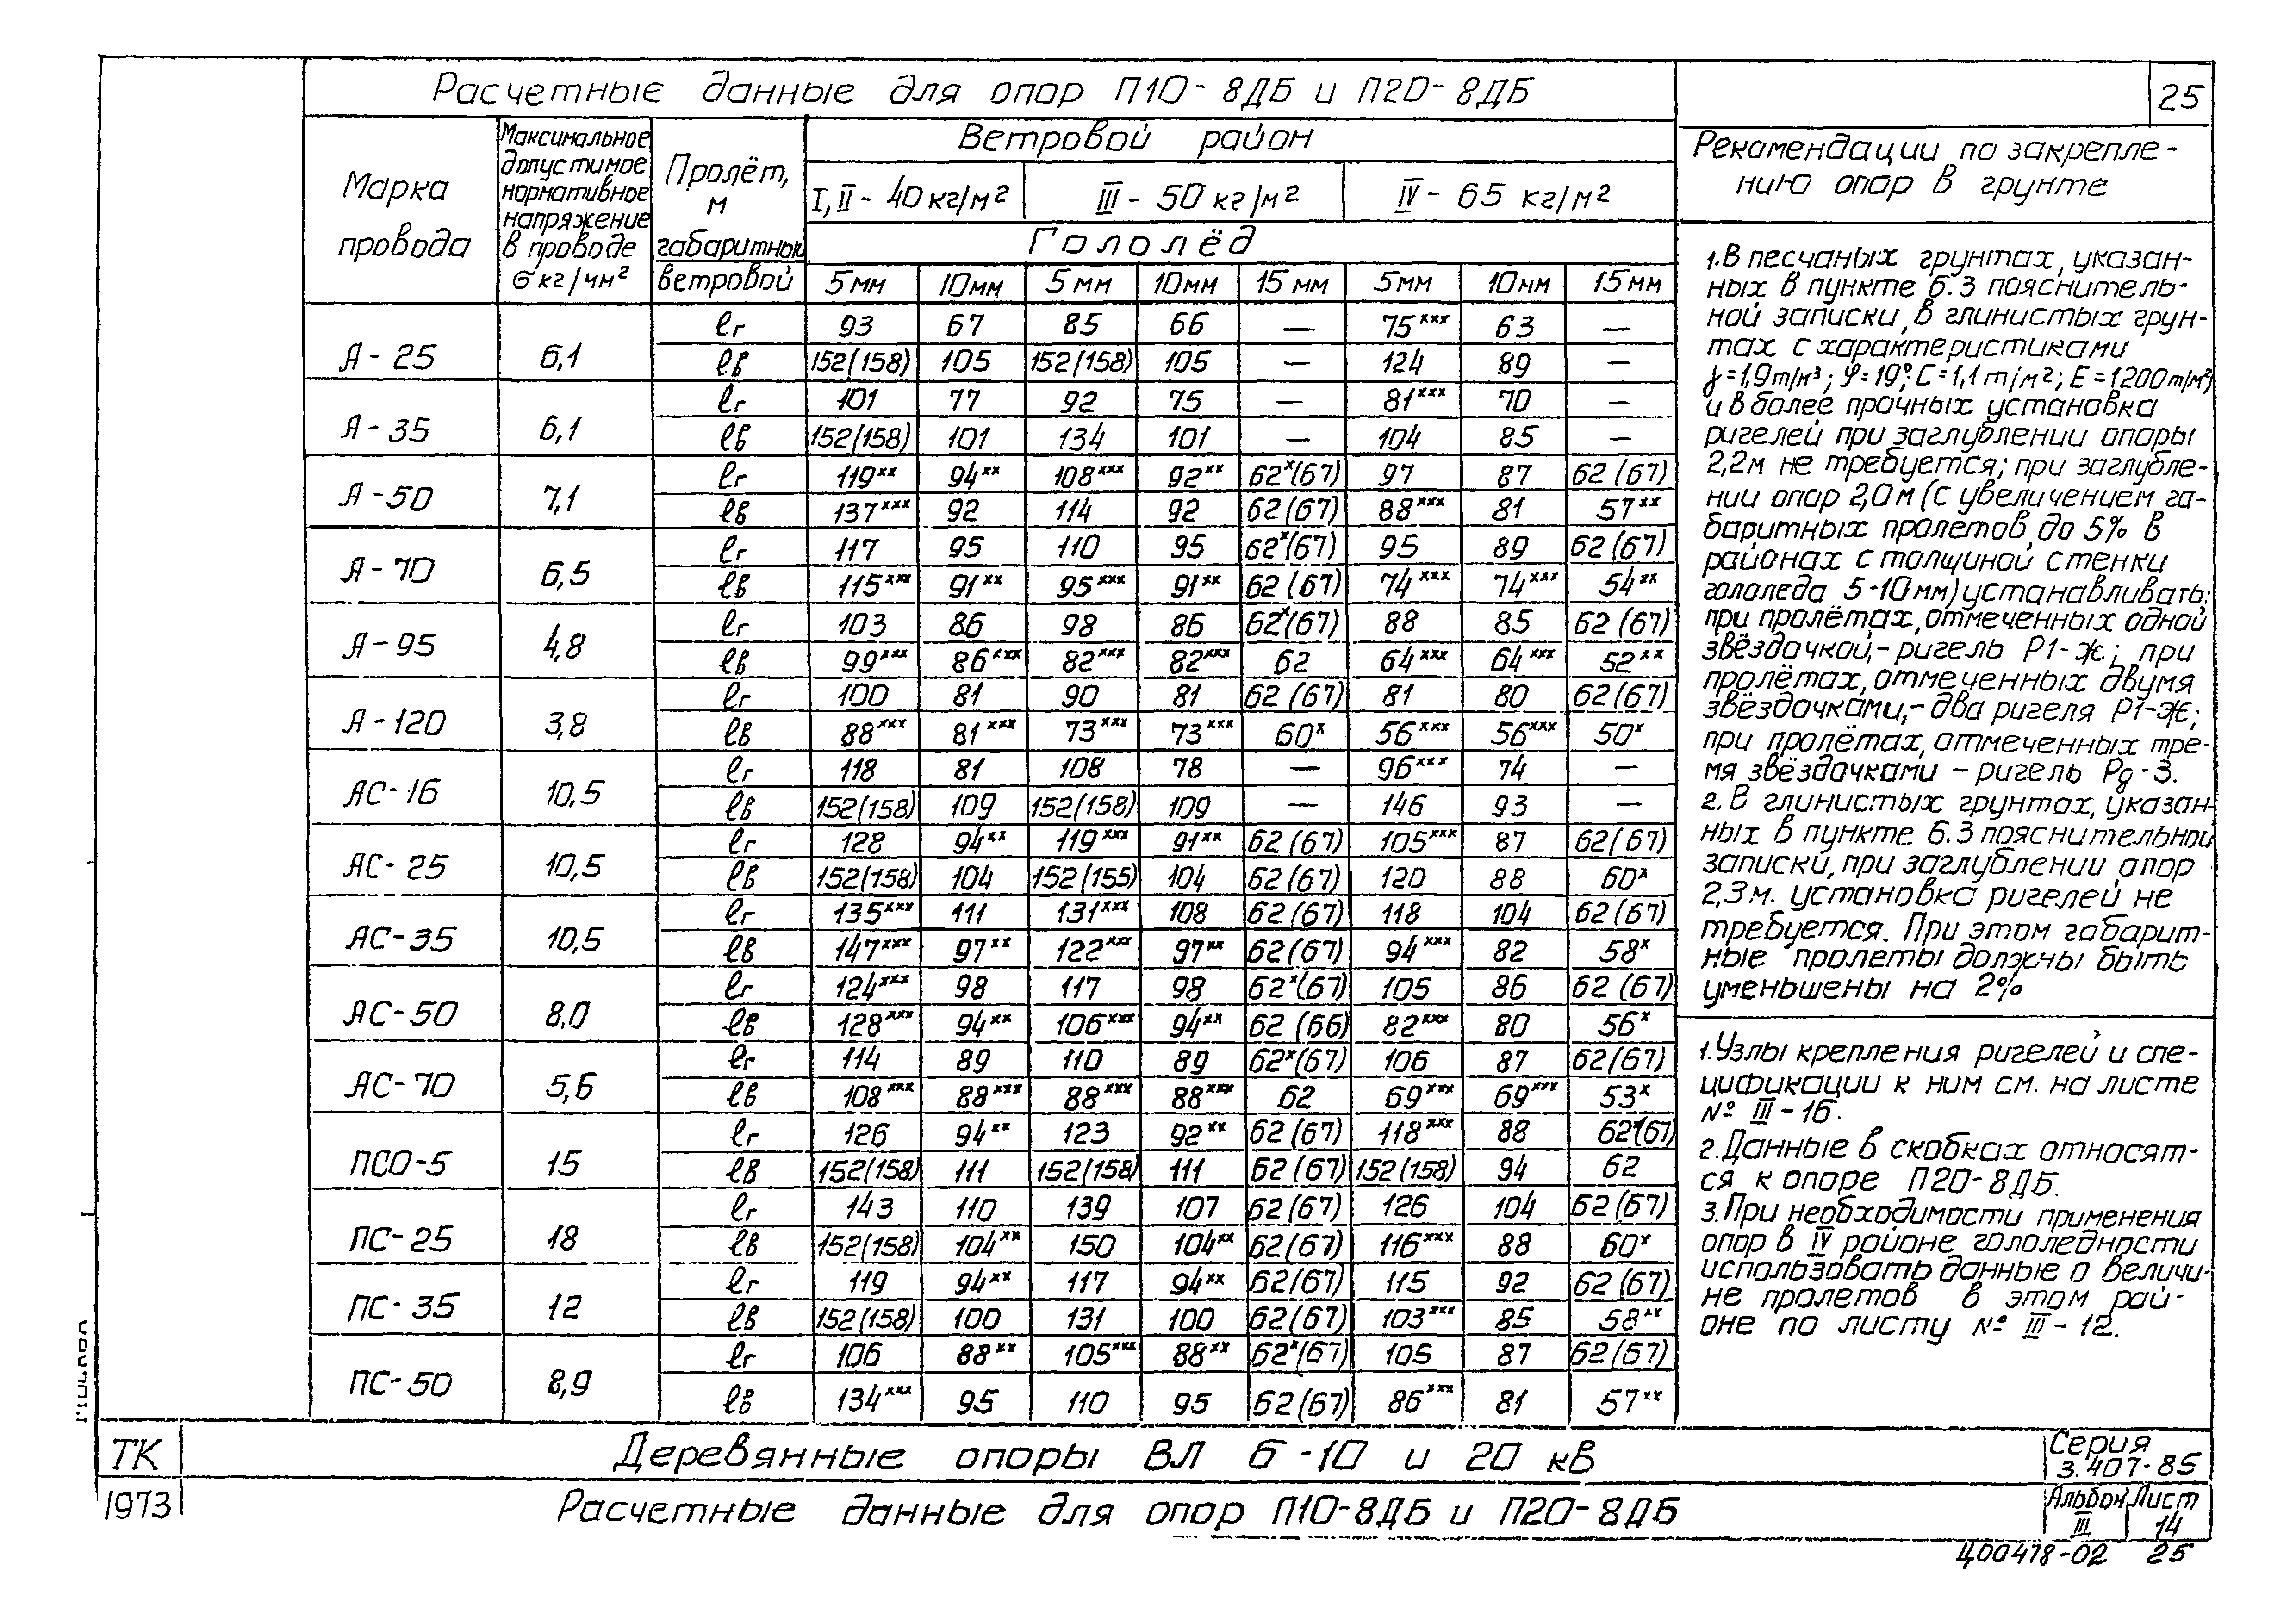 Расчетные данные для опор П10-8ДБ и П20-8ДБ
25
Марка провода
Максимальное допустимое нормативное напряжение в проводе σ кг/мм²
Пролёт, м габаритный ветровой
Ветровой район
I, II - 40 кг/м² III - 50 кг/м² IV - 65 кг/м²
Гололёд
5мм 10мм 5мм 10мм 15мм 5мм 10мм 15мм
А-25 6,1 lг 93 67 85 66 — 75ˣˣˣ 63 —
lв 152(158) 105 152(158) 105 — 124 89 —
А-35 6,1 lг 101 77 92 75 — 81ˣˣˣ 70 —
lв 152(158) 101 134 101 — 104 85 —
А-50 7,1 lг 119ˣˣ 94ˣˣ 108ˣˣˣ 92ˣˣ 62ˣ(67) 97 87 62(67)
lв 137ˣˣˣ 92 114 92 62(67) 88ˣˣˣ 81 57ˣˣ
А-70 6,5 lг 117 95 110 95 62ˣ(67) 95 89 62(67)
lв 115ˣˣˣ 91ˣˣ 95ˣˣˣ 91ˣˣ 62(67) 74ˣˣˣ 74ˣˣˣ 54ˣˣ
А-95 4,8 lг 103 86 98 86 62ˣ(67) 88 85 62(67)
lв 99ˣˣˣ 86ˣˣˣ 82ˣˣˣ 82ˣˣˣ 62 64ˣˣˣ 64ˣˣˣ 52ˣˣ
А-120 3,8 lг 100 81 90 81 62(67) 81 80 62(67)
lв 88ˣˣˣ 81ˣˣˣ 73ˣˣˣ 73ˣˣˣ 60ˣ 56ˣˣˣ 56ˣˣˣ 50ˣ
АС-16 10,5 lг 118 81 108 78 — 96ˣˣˣ 74 —
lв 152(158) 109 152(158) 109 — 146 93 —
АС-25 10,5 lг 128 94ˣˣ 119ˣˣˣ 91ˣˣ 62(67) 105ˣˣˣ 87 62(67)
lв 152(158) 104 152(155) 104 62(67) 120 88 60ˣ
АС-35 10,5 lг 135ˣˣˣ 111 131ˣˣˣ 108 62(67) 118 104 62(67)
lв 147ˣˣˣ 97ˣˣ 122ˣˣˣ 97ˣˣ 62(67) 94ˣˣˣ 82 58ˣ
АС-50 8,0 lг 124ˣˣˣ 98 117 98 62ˣ(67) 105 86 62(67)
lв 128ˣˣˣ 94ˣˣ 106ˣˣˣ 94ˣˣ 62(66) 82ˣˣˣ 80 56ˣ
АС-70 5,6 lг 114 89 110 89 62ˣ(67) 106 87 62(67)
lв 108ˣˣˣ 88ˣˣˣ 88ˣˣˣ 88ˣˣˣ 62 69ˣˣˣ 69ˣˣˣ 53ˣ
ПСО-5 15 lг 126 94ˣˣ 123 92ˣˣ 62(67) 118ˣˣˣ 88 62ˣ(67)
lв 152(158) 111 152(158) 111 62(67) 152(158) 94 62
ПС-25 18 lг 143 110 139 107 62(67) 126 104 62(67)
lв 152(158) 104ˣˣ 150 104ˣˣ 62(67) 116ˣˣˣ 88 60ˣ
ПС-35 12 lг 119 94ˣˣ 117 94ˣˣ 62(67) 115 92 62(67)
lв 152(158) 100 131 100 62(67) 103ˣˣˣ 85 58ˣˣ
ПС-50 8,9 lг 106 88ˣˣ 105ˣˣˣ 88ˣˣ 62ˣ(67) 105 87 62(67)
lв 134ˣˣˣ 95 110 95 62(67) 86ˣˣˣ 81 57ˣˣ
Рекомендации по закрепле-
нию опор в грунте
1. В песчаных грунтах, указан-
ных в пункте 6.3 пояснитель-
ной записки, в глинистых грун-
тах с характеристиками
γ=1,9т/м³; φ=19°; С=1,1 т/м²; Е=1200т/м²
и в более прочных установка
ригелей при заглублении опоры
2,2м не требуется; при заглубле-
нии опор 2,0м (с увеличением га-
баритных пролетов до 5% в
районах с толщиной стенки
гололеда 5-10мм) устанавливать:
при пролётах, отмеченных одной
звёздочкой,- ригель Р1-Ж; при
пролётах, отмеченных двумя
звёздочками,- два ригеля Р1-Ж;
при пролётах, отмеченных тре-
мя звёздочками - ригель Рд-3.
2. В глинистых грунтах, указан-
ных в пункте 6.3 пояснительной
записки, при заглублении опор
2,3м. установка ригелей не
требуется. При этом габарит-
ные пролеты должны быть
уменьшены на 2%
1. Узлы крепления ригелей и спе-
цификации к ним см. на листе
№ III-16.
2. Данные в скобках относят-
ся к опоре П20-8ДБ.
3. При необходимости применения
опор в IV районе гололедности
использовать данные о величи-
не пролетов в этом рай-
оне по листу № III-12.
ТК
1973
Деревянные опоры ВЛ 6-10 и 20 кВ
Расчетные данные для опор П10-8ДБ и П20-8ДБ
Серия
3.407-85
Альбом Лист
III 14
Ц00478-02 25